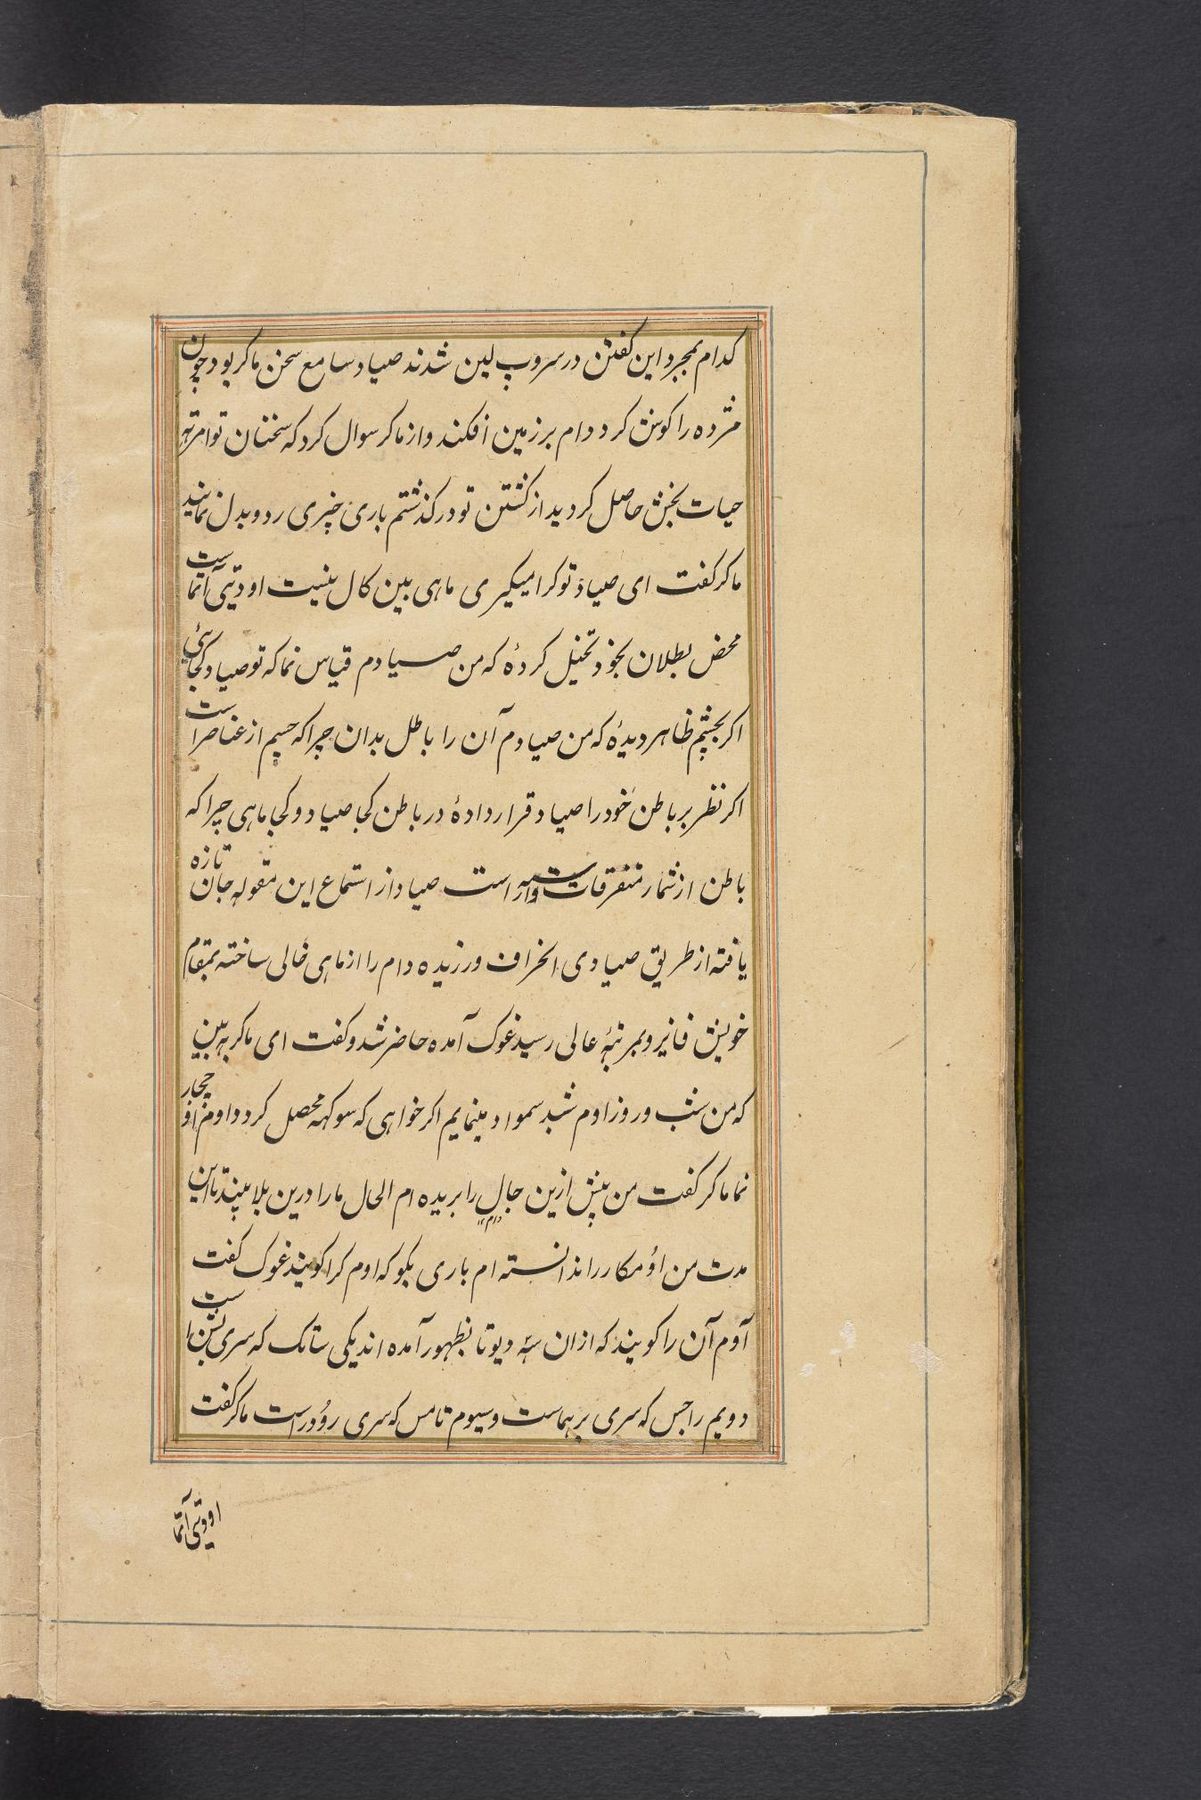 کدام بمجرد این گفتن در سروپ لین شدند صیاد سامع سخن ماکر بود چون
مژده را گوش کرد دام بر زمین افکند و از ماکر سوال کرد که سخنان تو امرته
حیات بخش حاصل کردید از کشتن تو در گذشتم باری چیزی رد و بدل نمایند
ماکر گفت ای صیاد تو کرا میگیری ماهی بین کال نیست اودتی آتما ست
محض بطلان بخود تخیل کردهٔ که من صیادم قیاس نما که تو صیاد کجائی
اگر بچشم ظاهر دیدهٔ که من صیادم آن را باطل بدان چرا که جسم از عناصر است
اگر نظر بر باطن خود را صیاد قرار دادهٔ در باطن کجا صیاد و کجا ماهی چرا که
باطن از شمار متفرقات است صیاد از استماع این مقوله جان تازه
یافته از طریق صیادی انحراف ورزیده دام را از ماهی خالی ساخته بمقام
خویش فایز و بمرتبهٔ عالی رسید غوک آمده حاضر شد و گفت ای ماکر به بین
که من شب و روز اوم شبد سمواد مینمایم اگر خواهی که سوکهه محصل کردد اوم اوچار
نما ماکر گفت من پیش ازین جال را بریده ام الحال ما را درین بلا مپند تا این
مدت من اؤمکار را ندانسته ام باری بگو که اوم کرا گویند غوک گفت
آوم آن را گویند که از ان سه دیوتا بظهور آمده اند یکی ساتک که سری بشن است
دویم راجس که سری برهماست و سیوم تامس که سری رؤدر است ماکر گفت
اودتی آتما